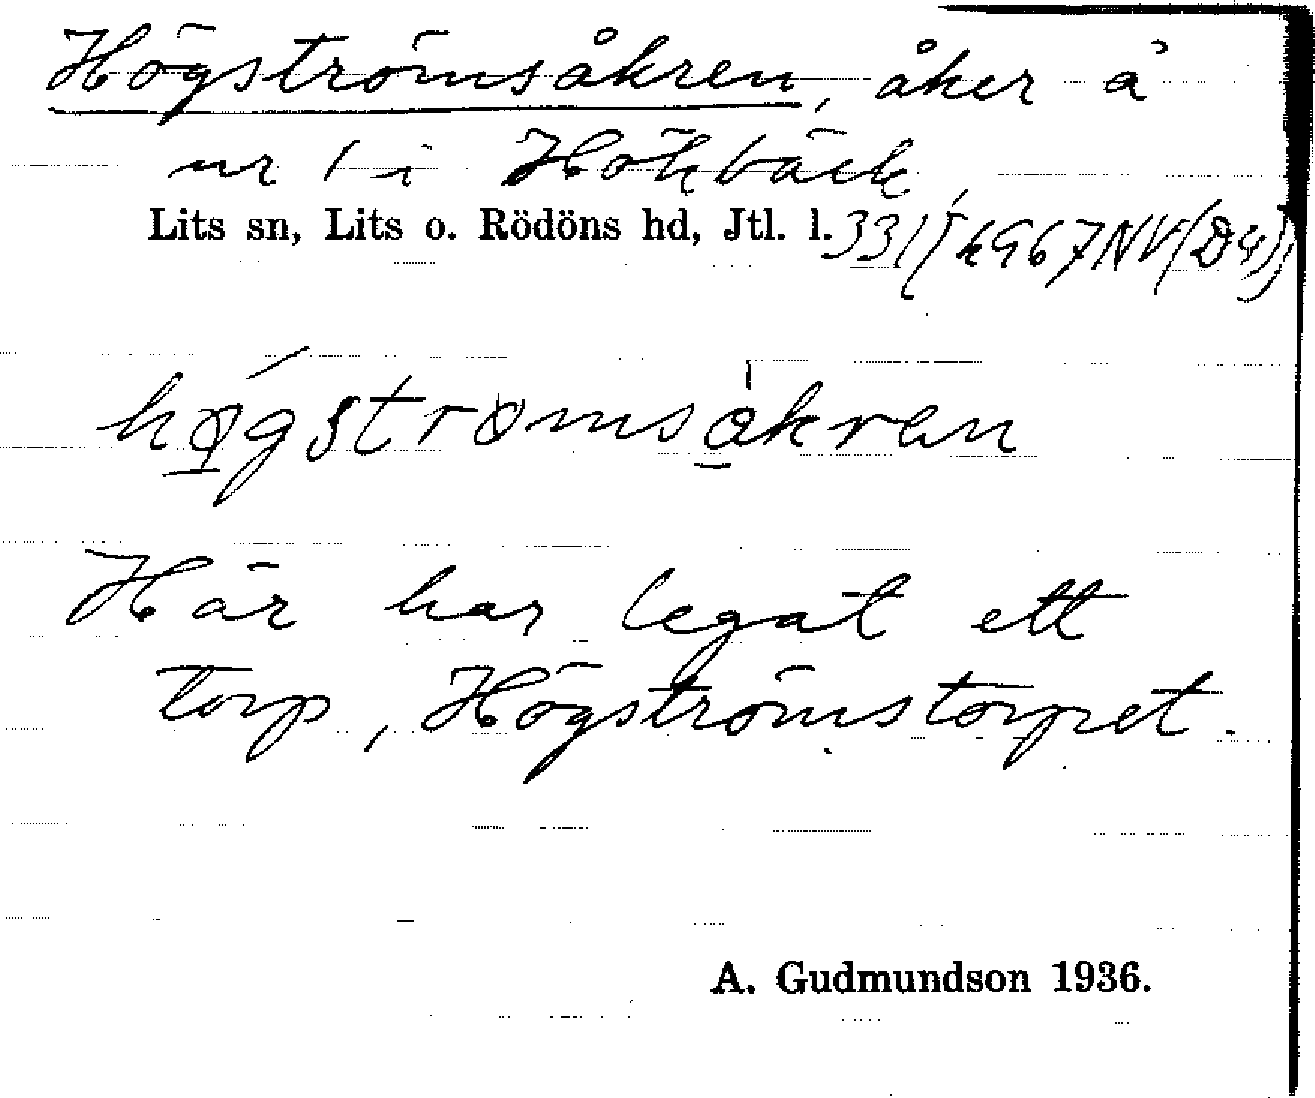 Högströmsåkren, åker å
nr 1 i Hökbäck,
Lits sn, Lits o. Rödöns hd, Jtl. l. 331/6967NV(D4)
högströmsåkren
Här har legat ett
torp, Högströmstorpet.
A. Gudmundson 1936.